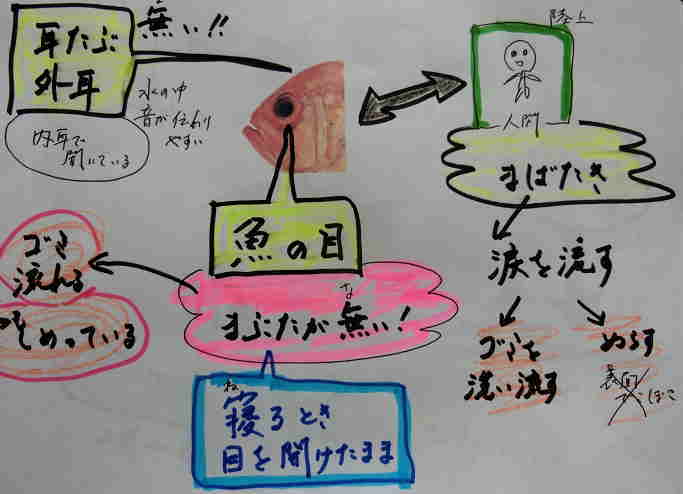 耳たぶ
外耳
無い!!
水の中
音が伝わり
やすい
内耳で
聞いている
陸上
人間
まばたき
涙を流す
ゴミを
洗い流す
ぬらす
表面
でこぼこ
魚の目
な
まぶたが無い!
ゴミ
流れる
しめっている
ね
寝るとき
目を開けたまま